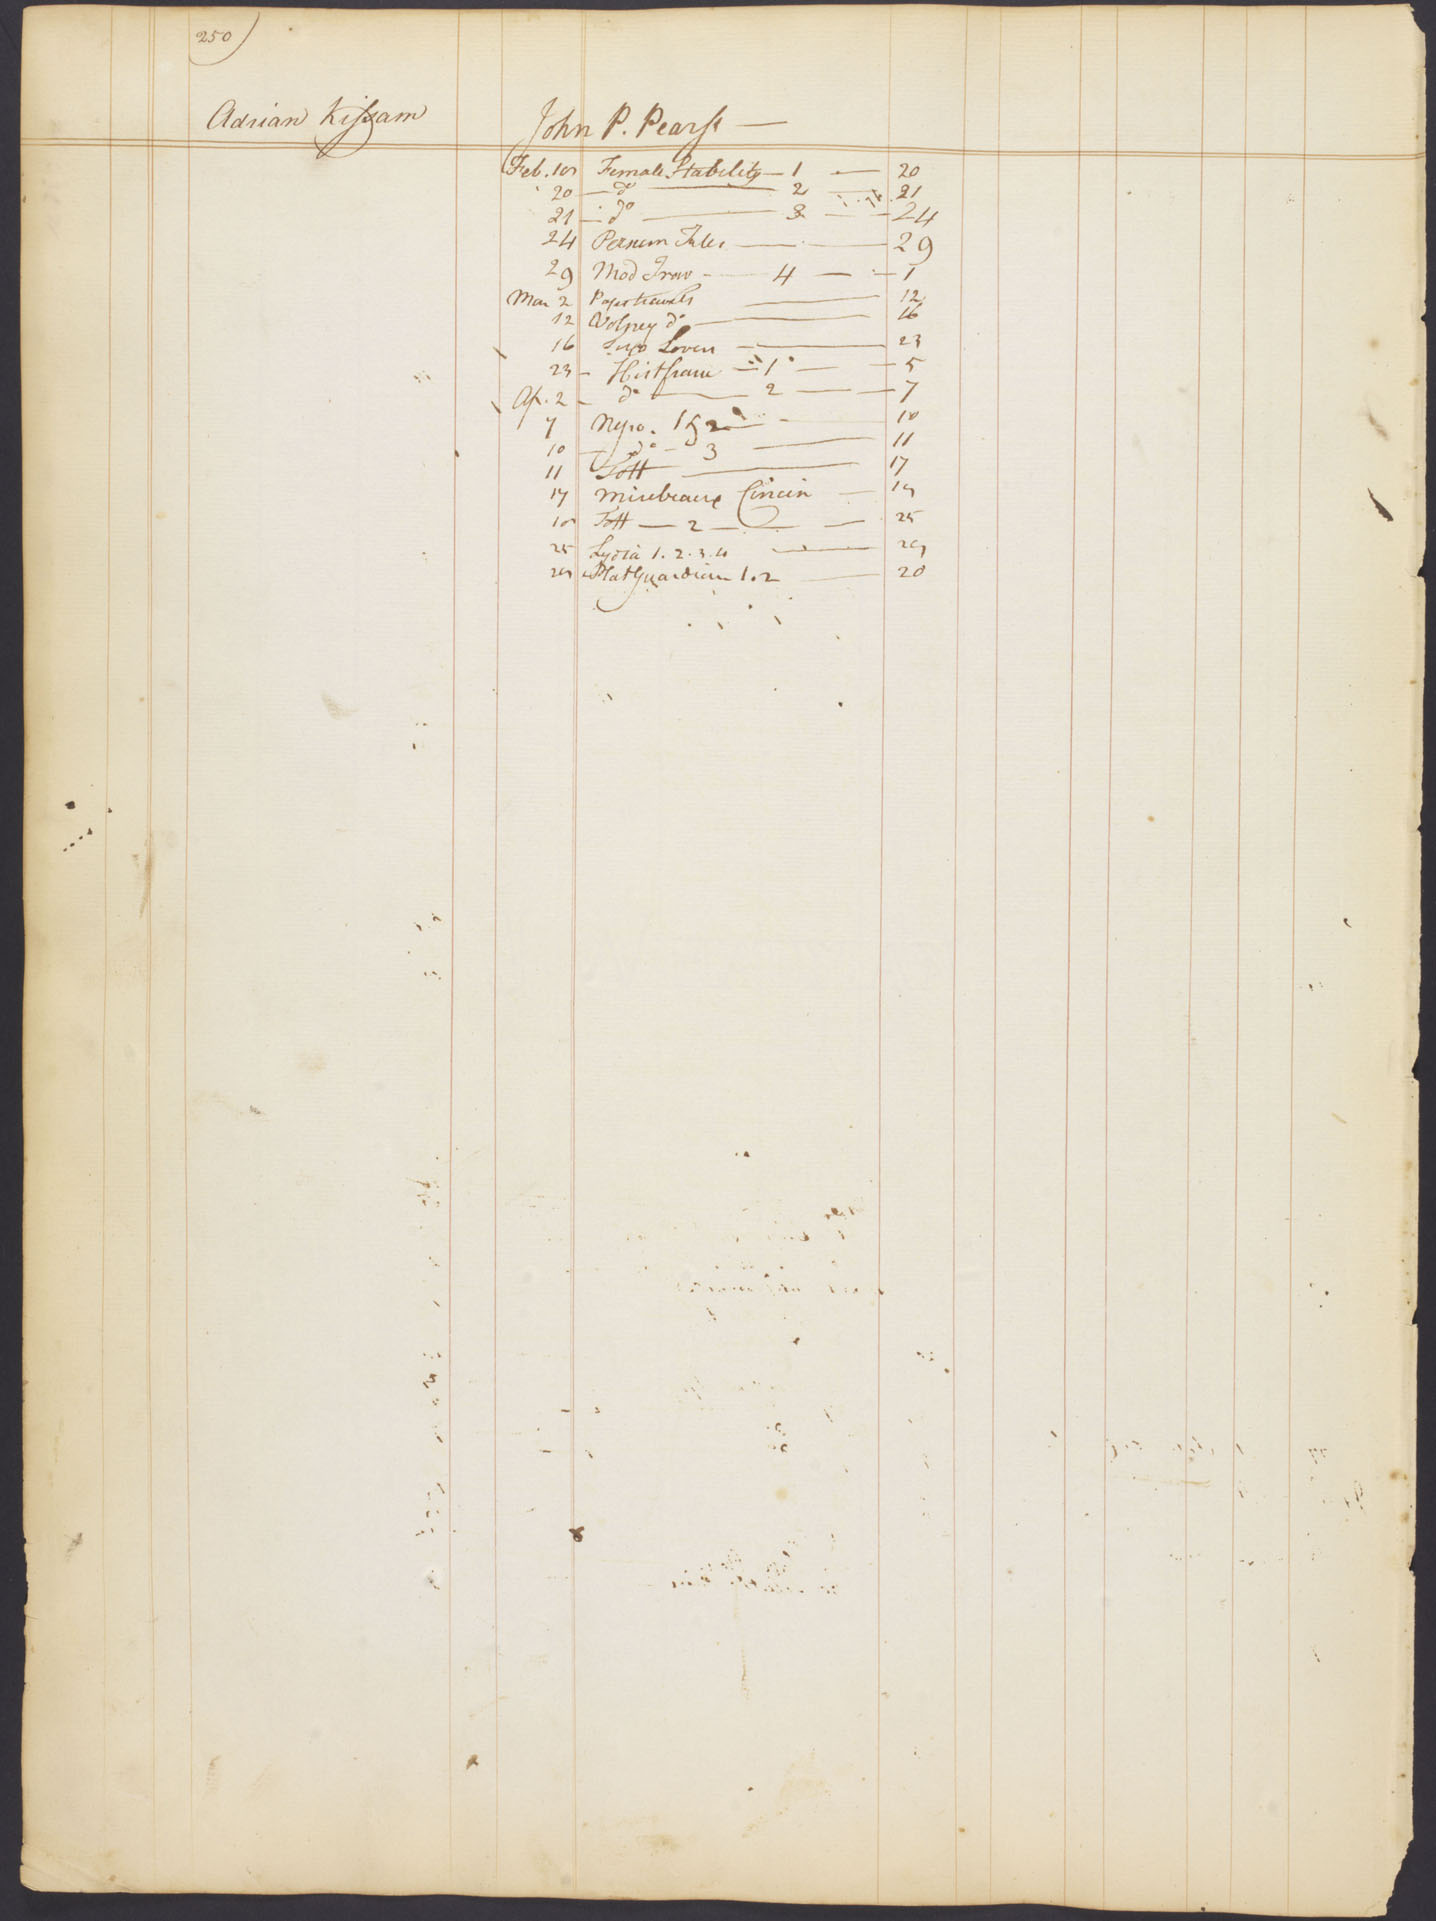 250
Adrian Kissam
John P. Pearss —
Feb. 18 Female Stability — 1 — 20
20 — do — 2 — 21
21 — do — 3 — 24
24 Persian Tales — 29
29 Mod Trav — 4 — 1
Mar 2 Pages travels — 12
12 Volney do — 16
16 Lovers — 23
23 — Hist france — 1 — 5
Ap. 2 — do — 2 — 7
7 1 & 2 — 10
10 — do — 3 — 11
11 Tott — 17
17 Mirebeaux Cincin — 18
18 Tott — 2 — 25
25 Lydia 1. 2. 3. 4 — 28
28 Plat Guardian 1. 2 — 20